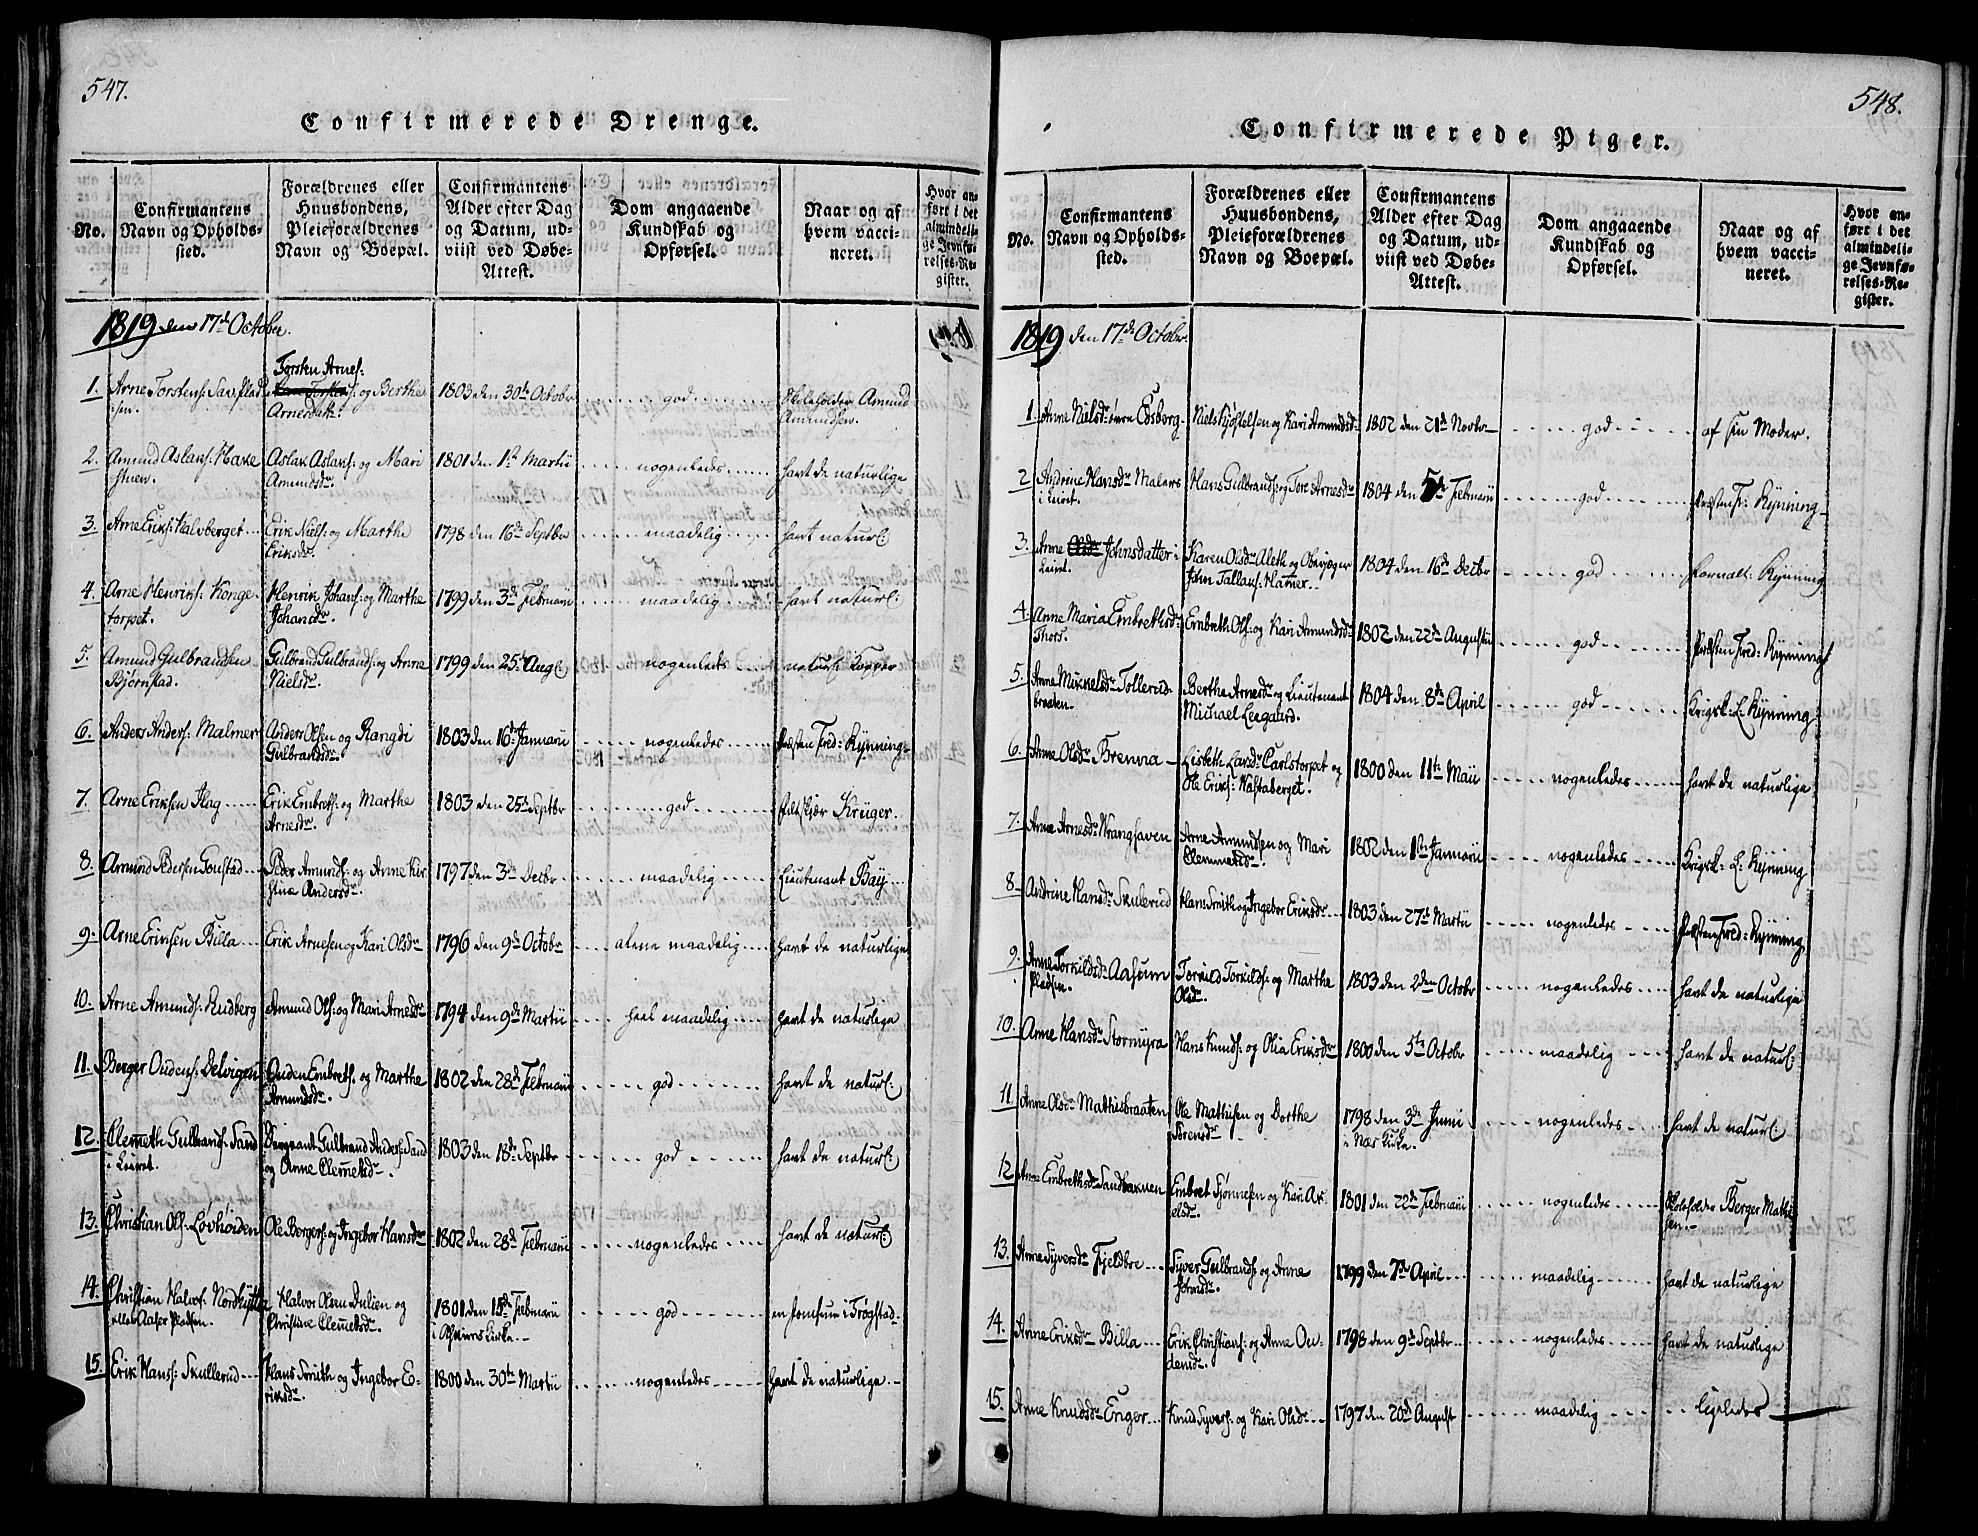 547.
Confirmerede Drenge.
No.
Confirmantens
Navn og Opholds-
sted.
Forældrenes eller
Huusbondens,
Pleieforældrenes
Navn og Boepæl.
Confirmantens
Alder efter Dag
og Datum, ud-
viist ved Døbe-
Attest.
Dom angaaende
Kundskab og
Opførsel.
Naar og af
hvem vacci-
neret.
Hvor an-
ført i det
almindeli-
ge Jevnfø-
relses-Re-
gister.
1819 den 17de October.
1. Arne Torstens: Sav. Plad
sen.
Torsten Arnes:
og Berthe
Arnesdatt:
1803 den 30te Octobr
god
Skoleholder Amund
Amundsen.
2. Amund Aslaks: Hake
stuen.
Aslak Aslaks: og Mari
Amundsdr.
1801 den 1ste Martii
nogenledes
havt de naturlige
3. Arne Eriks: Halvberget
Erik Niels: og Marthe
Eriksdr.
1798 den 16de Septbr
maadelig
havt naturl:
4. Arne Henriks: Konge-
torpet.
Henrik Johans: og Marthe
Johansdr.
1799 den 3de Februarii
maadelig
havt naturl:
5. Amund Gulbrandsen
Bjørnstad.
Gulbrand Gulbrands: og Anne
Nielsdr.
1799 den 25de Aug:
nogenleds
naturl: Kopper
6. Anders Anders: Malmer
Anders Olsen og Rangdi
Gulbrandsdr.
1803 den 16de Januarii
nogenledes
Præsten Fred: Rynning
7. Arne Eriksen Flag
Erik Embrets: og Marthe
Arnesdr.
1803 den 25de Septbr
god
Feldskjær Krüger.
8. Amund Pedersen Gonstad
Peder Amunds: og Anne Kir
stine Andersdr.
1797 den 3de Decbr
maadelig
Lieutenant Bay
9. Arne Eriksen Billa
Erik Arnesen og Kari Olsdr
1796 den 9de Octobr
alene maadelig
havt de naturlige
10. Arne Amunds: Rudberg
Amund Ols: og Mari Arnesdr
1794 den 9de Martii
heel maadelig
havt de naturlige
11. Berger Oudens: Delvigen
Ouden Embrets: og Marthe
Amundsdr.
1802 den 28de Februarii
god
havt de naturl:
12. Clemeth Gulbrands: Sand
i Leiret.
Sergeant Gulbrand Anders: Sand
og Anne Clemetsdr.
1803 den 18de Septbr
god
havt de naturl:
13. Christian Ols: Lovhøiden
Ole Bergers: og Ingebor Hansdr
1802 den 28de Februarii
nogenledes
havt de naturl:
14. Christian Halvors: Nordhytta
eller Aaser Pladsen.
Halvor Olsen Dulien og
Christine Clemetsdr.
1801 den 15de Februarii
i Kirke.
god
en Jomfrue i Trøgstad
15. Erik Hans: Skullerud
Hans Smith og Ingebor E-
riksdr.
1800 den 30te Martii
nogenledes
havt de naturlige
548.
Confirmerede Piger.
No.
Confirmantens
Navn og Opholds-
sted.
Forældrenes eller
Huusbondens,
Pleieforældrenes
Navn og Boepæl.
Confirmantens
Alder efter Dag
og Datum, ud-
viist ved Døbe-
Attest.
Dom angaaende
Kundskab og
Opførsel.
Naar og af
hvem vacci-
neret.
Hvor an-
ført i det
almindeli-
ge Jevnfø-
relses-Re-
gister.
1819 den 17de Octobr.
1. Anne Nielsdr Edsberg
Niels Kjøstelsen og Kari Amundsdr
1802 den 21de Novbr
god
af sin Moder.
2 Andrine Hansdr Malers
i Leiret.
Hans Gulbrands: og Tore Arnesdr
1804 den 5te Februarii
god
Præsten Fr: Rynning
3. Anne Johnsdatter i
Leiret.
Karen Olsdr Aleth og Oberjæger
John Tallaks: Hammer.
1804 den 16de Decbr
god
Rynning
4. Anne Maria Embrethsdr
Thors.
Embreth Ols: og Kari Amundsdr
1802 den 22de Augustii
god
Præsten Fred: Rynning
5. Anne Mikkelsdr Tollerud-
braaten.
Berthe Arnesdr og Lieutenant
Michael Leegaard.
1804 den 8de April
god
Krigsk: L: Rynning
6. Anne Olsdr Brenna
Lisbeth Larsdr Carlstorpet og
Ole Eriks: Haftaberget.
1800 den 11te Maii
nogenledes
havt de naturlige
7. Anne Arnesdr Vranghaven
Arne Amundsen og Mari
Clemmetsdr.
1802 den 1ste Januarii
nogenledes
Krigsk: L: Rynning
8. Andrine Hansdr Skulerud
Hans Smith og Ingebor Eriksdr
1803 den 27de Martii
nogenledes
Præsten Fred: Rynning
9. Anne Torkildsdr Aasum
Pladsen.
Torkild Torkilds: og Marthe
Olsdr.
1803 den 2den Octobr
nogenledes
havt de naturlige
10. Anne Hansdr Stormyra
Hans Knuds: og Olia Eriksdr
1800 den 5te Octobr
maadelig
havt de naturl:
11. Anne Olsdr Mathisbraaten
Ole Mathisen og Dorthe
Sørensdr
1798 den 3de Junii
i Næs Kirke.
nogenledes
havt de naturl:
12 Anne Embrethsdr Sandbakken
Embret Sjønnesen og Kari Ax
elsdr.
1801 den 22de Februarii
nogenledes
Skoleholder Berger Mathi
sen.
13. Anne Syversdr Fjeldbre
Syver Gulbrands: og Anne
Johnsdr.
1799 den 7de April
maadelig
havt de naturlige
14. Anne Eriksdr Billa
Erik Christians: og Anne Ou-
densdr.
1798 den 9de Septbr
nogenledes
havt de naturlige
15. Anne Knudsdr Enger
Knud Syvers: og Kari Olsdr
1797 den 20de August
maadelig
ligeledes